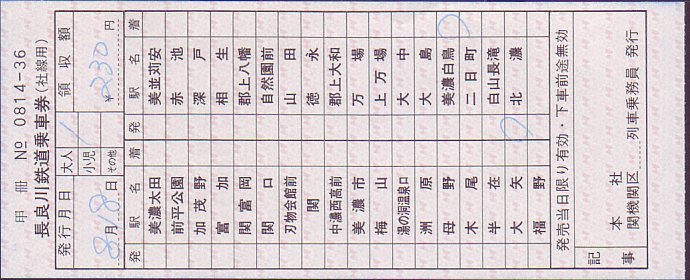 甲 冊 № 0814-36
長良川鉄道乗車券(社線用)
発行月日 大人 小児 その他 領収額
8月18日 ¥230円
発 駅名 着 発 駅名 着
美濃太田 美並苅安
前平公園 赤池
加茂野 深戸
富加 相生
関富岡 郡上八幡
関口 自然園前
刃物会館前 山田
関 徳永
中濃西高前 郡上大和
美濃市 万場
梅山 上万場
湯の洞温泉口 大中
洲原 大島
母野 美濃白鳥
木尾 二日町
半在 白山長滝
大矢 北濃
福野
発売当日限り有効・下車前途無効
記事
本社
関機関区 列車乗務員 発行